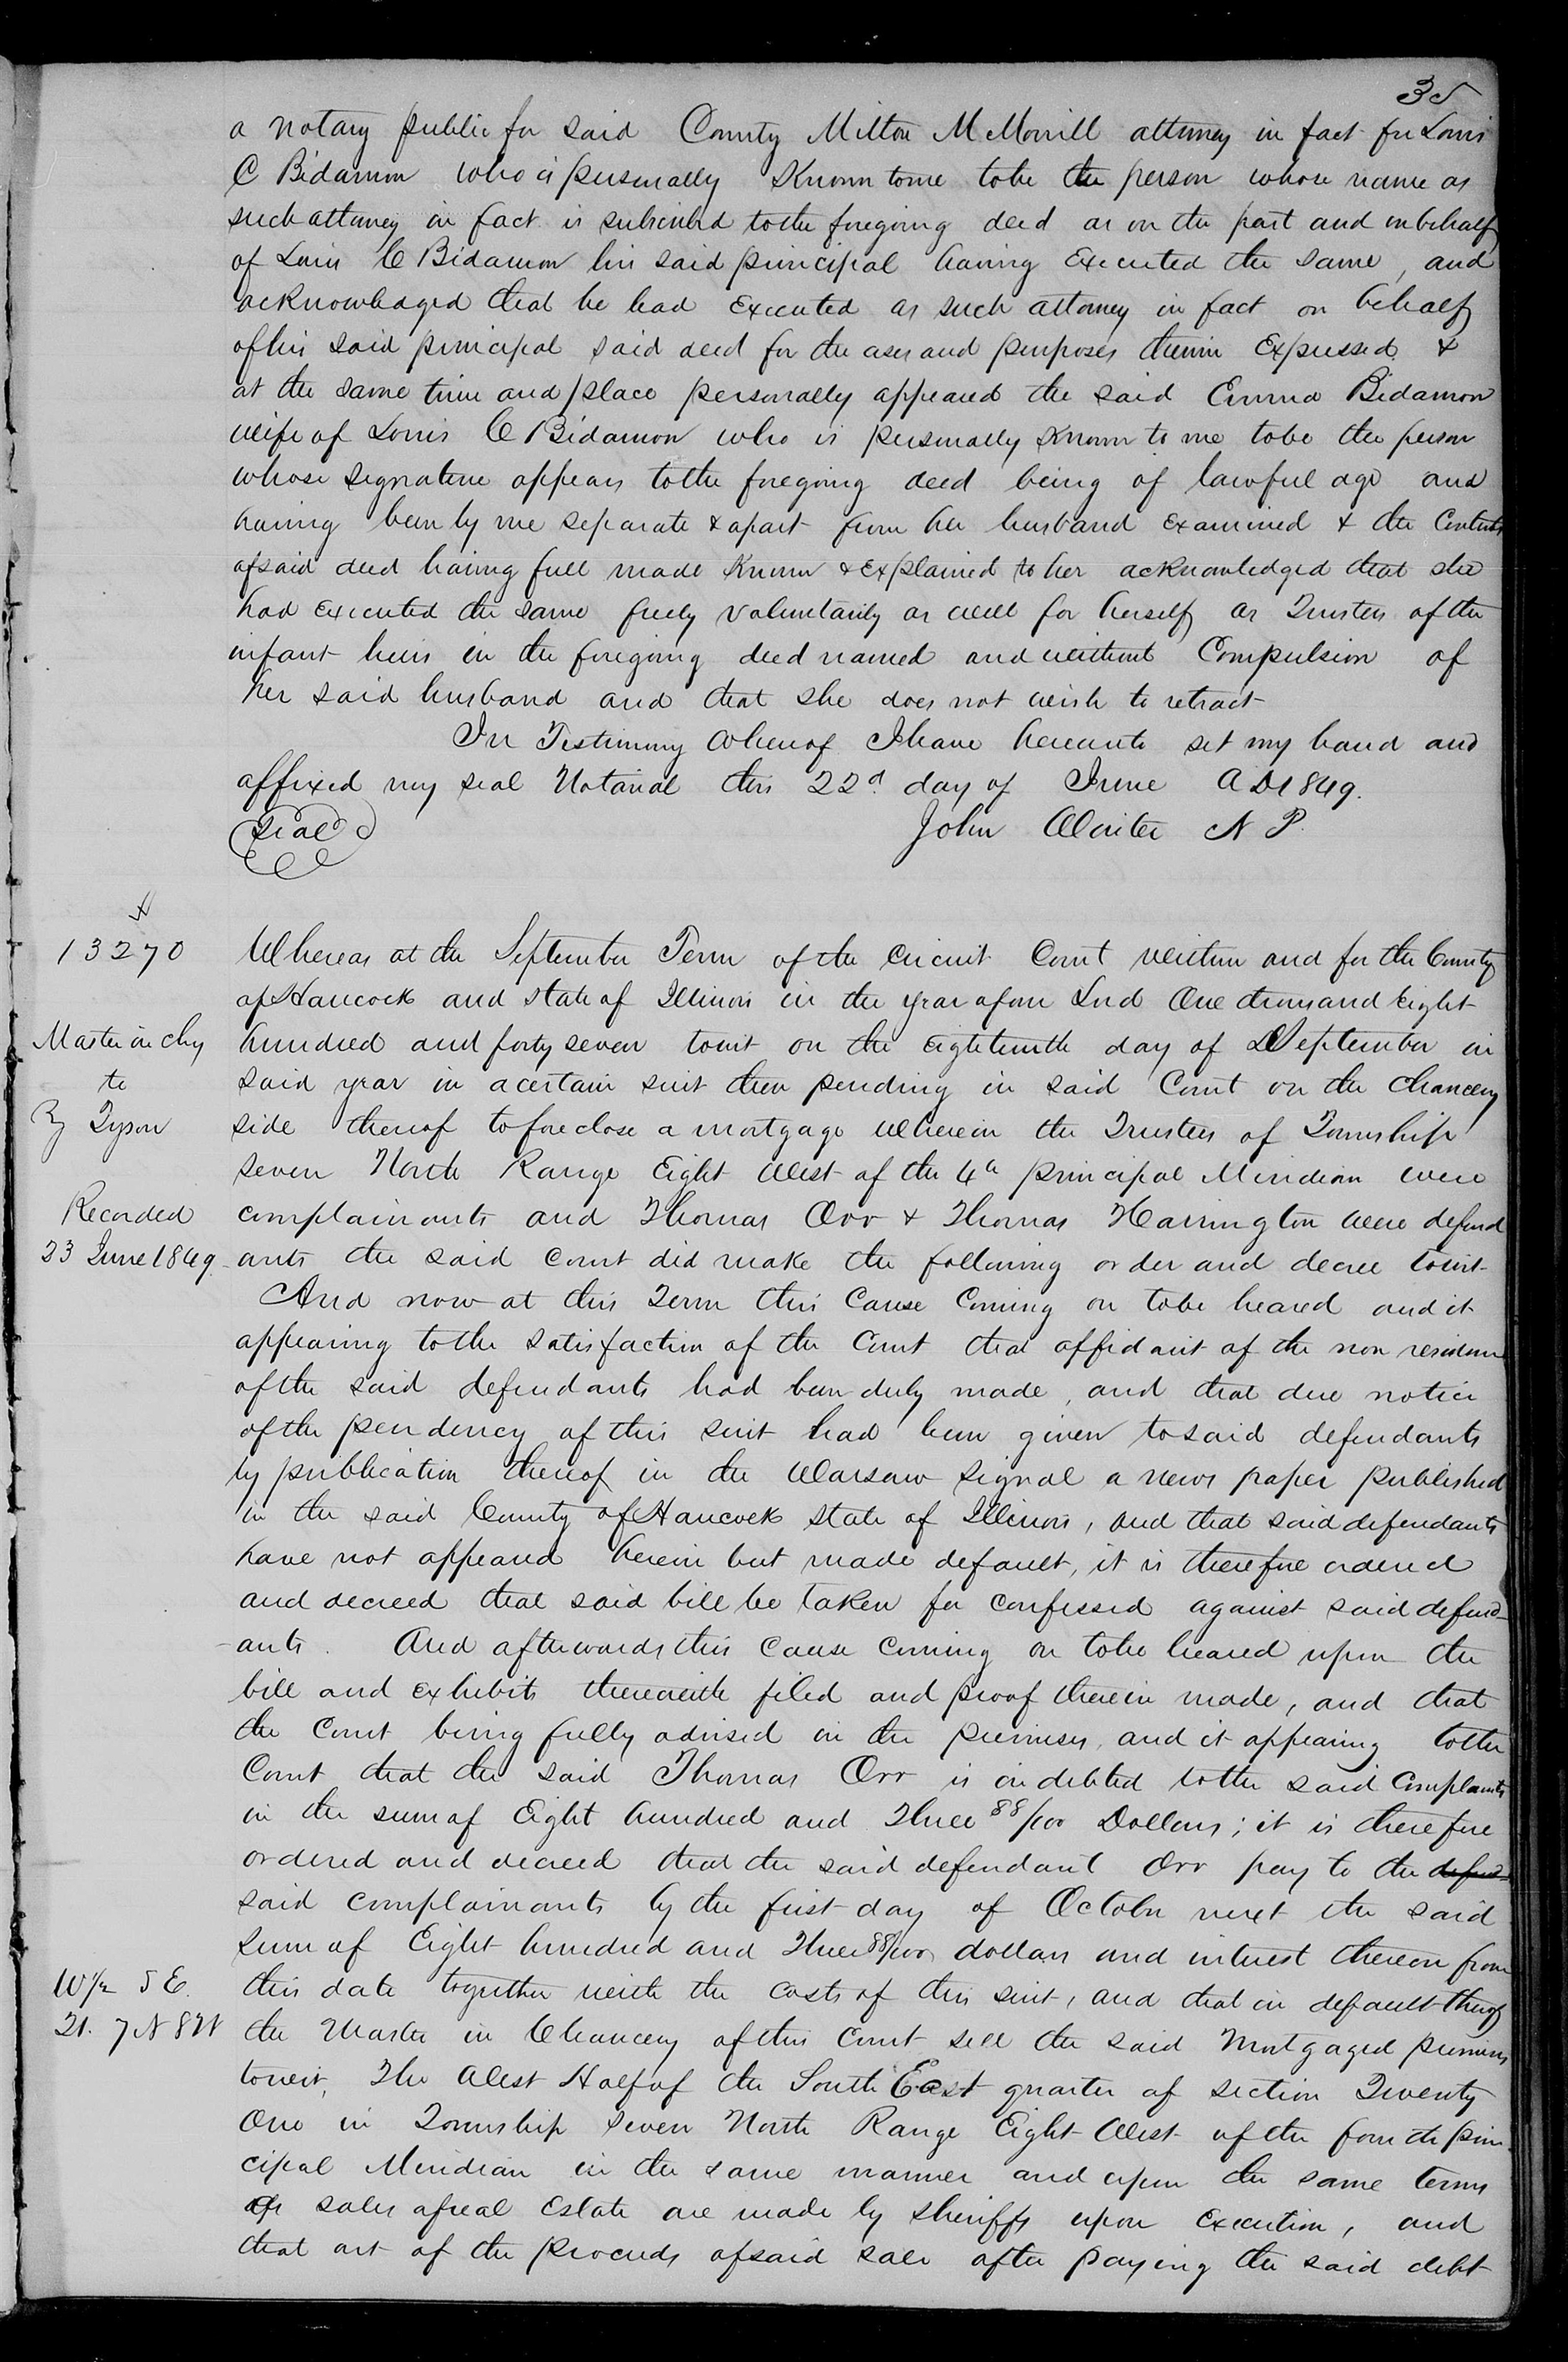 35
a notary public for said County Milton M Morrill attorney in fact for Louis
C Bidamon who is personally Known to me to be the person whose name as
such attorney in fact is subscribed to the foregoing deed as on the part and on behalf
of Louis C Bidamon his said principal having Executed the same, and
acknowledged that he had Executed as such attorney in fact on behalf
of his said principal said deed for the uses and purposes therein Expressed &
at the same time and place personally appeared the said Emma Bidamon
wife of Louis C Bidamon who is personally Known to me to be the person
whose signature appears to the foregoing deed being of lawful age and
having been by me separate & apart from her husband Examined & the Contents
of said deed having full made Known & Explained to her acknowledged that she
had Executed the same freely voluntarily as well for herself as Trustee of the
infant heirs in the foregoing deed named and without Compulsion of
her said husband and that she does not wish to retract
In Testimony Whereof I have hereunto set my hand and
affixed my seal Notarial this 22d day of June A D 1849.
Seal
John Winter N P.
13270
Master in chy
to
Z Tyson
Recorded
23 June 1849
Whereas at the September Term of the Circuit Court within and for the County
of Hancock and state of Illinois in the year of our Lord One thousand Eight
hundred and forty seven towit on the Eighteenth day of September in
said year in a certain suit then pending in said Court on the Chancery
side thereof to foreclose a mortgage Wherein the Trustees of Township
seven North Range Eight West of the 4th principal Meridian were
complainants and Thomas Orr & Thomas Harrington were defend
ants the said Court did make the following order and decree towit
And now at this Term this Cause Coming on to be heared and it
appearing to the satisfaction of the Court that affidavit of the non residence
of the said defendants had been duly made, and that due notice
of the pendency of this suit had been given to said defendants
by publication thereof in the Warsaw Signal a news paper published
in the said County of Hancock State of Illinois, and that said defendants
have not appeared herein but made default, it is therefore ordered
and decreed that said bill be taken for confessed against said defend-
-ants. And afterwards this Cause Coming on to be heared upon the
bill and exhibits therewith filed and proof therein made, and that
the Court being fully advised in the premises, and it appearing to the
Court that the said Thomas Orr is indebted to the said Complainants
in the sum of Eight hundred and Three 88/100 Dollars; it is therefore
ordered and decreed that the said defendant Orr pay to the defend
said complainants by the first day of October next the said
sum of Eight hundred and Three 88/100 dollars and interest thereon from
this date together with the costs of this suit, and that in default thereof
W 1/2 S E.
21. 7 N 8 W
the Master in Chancery of this Court sell the said Mortgaged premises
towit, The West Half of the South East quarter of section Twenty
One in Township seven North Range Eight West of the fourth prin
cipal Meridian in the same manner and upon the same terms
as sales of real Estate are made by sheriffs upon Execution, and
that out of the proceeds of said sale after paying the said debt